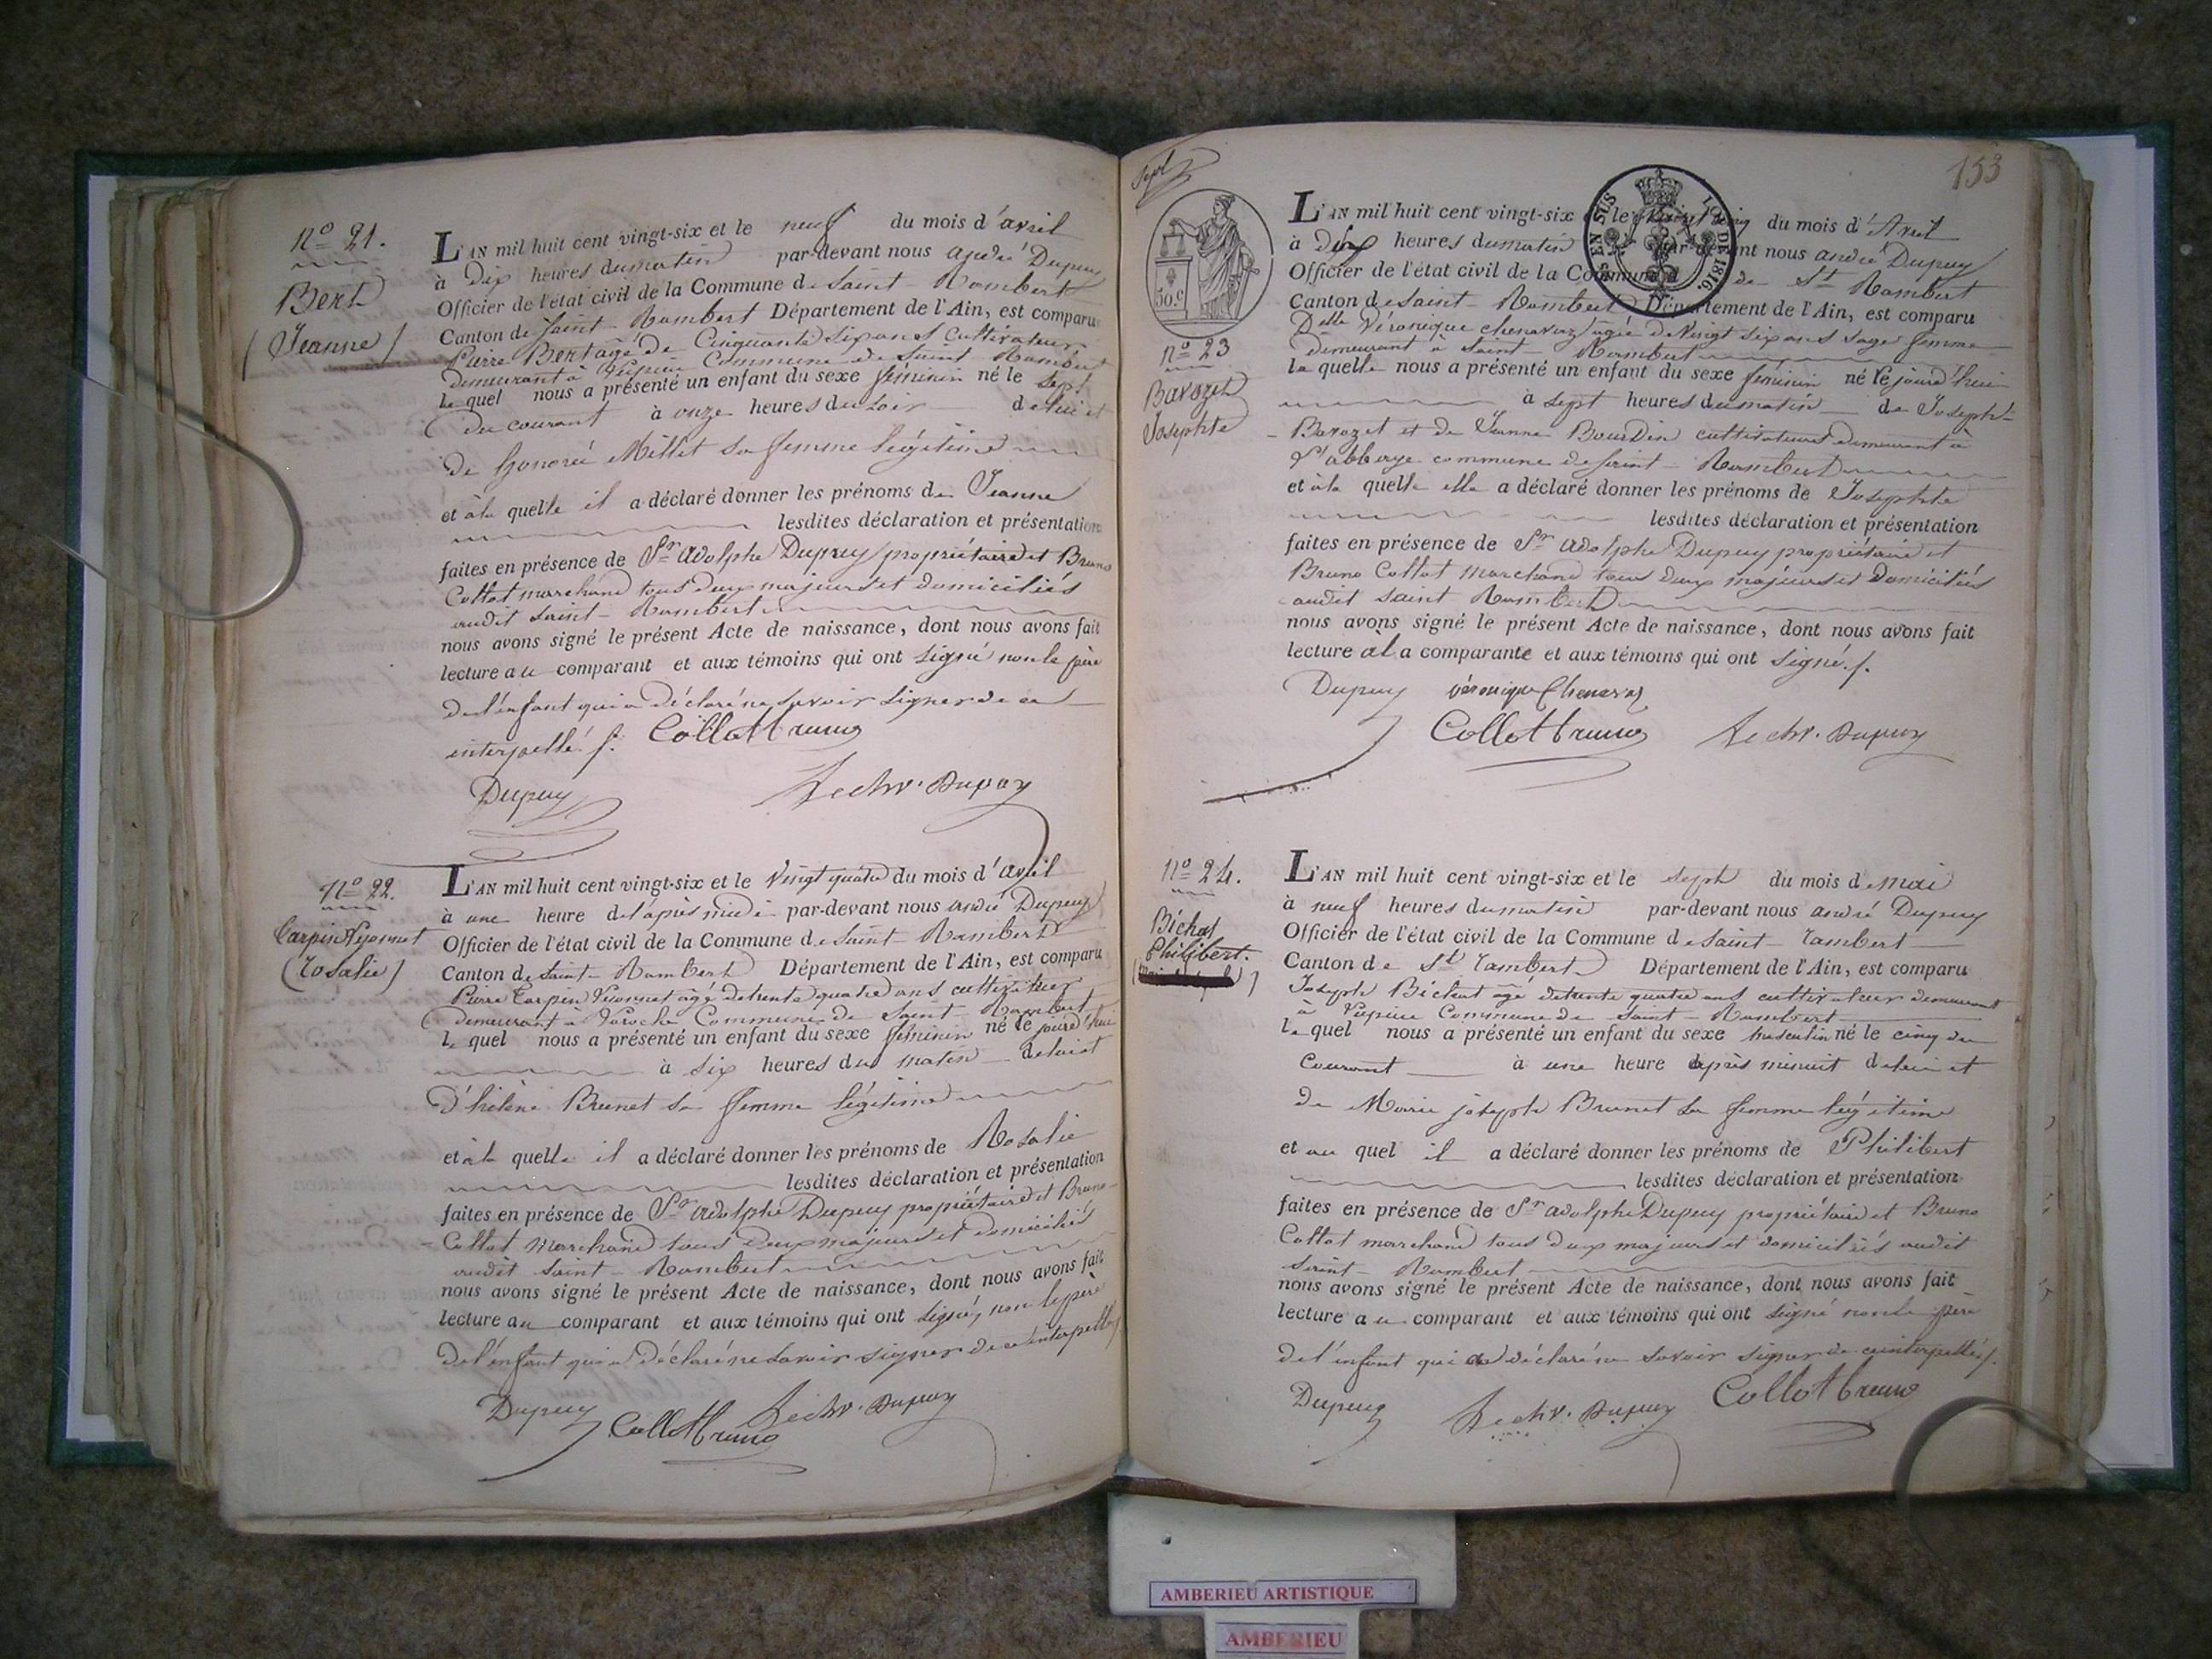 nº 21.
Bert
(Jeanne)
L'AN mil huit cent vingt-six et le neuf du mois d'avril
à dix heures du matin par-devant nous andré Dupuy
Officier de l'état civil de la Commune de Saint-Rambert
Canton de Saint-Rambert Département de l'Ain, est comparu
Pierre Bert âgé de Cinquante six ans Cultivateur
Demeurant à Commune de Saint Rambert
le quel nous a présenté un enfant du sexe féminin né le sept
du courant à onze heures du soir de lui et
de honorée Millet sa femme légitime
et à la quelle il a déclaré donner les prénoms de Jeanne
lesdites déclaration et présentation
faites en présence de Sr adolphe Dupuy propriétaire et Bruno
Collot marchand tous deux majeurs et domiciliés
audit Saint-Rambert
nous avons signé le présent Acte de naissance, dont nous avons fait
lecture au comparant et aux témoins qui ont signé non le père
de l'enfant qui a déclaré ne savoir signer de ce
interpellé ./.
Collot bruno
Dupuy
Dupuy
nº 22.
Carpin Vyonnet
(rosalie)
L'AN mil huit cent vingt-six et le vingt quatre du mois d'avril
à une heure de l'après midi par-devant nous andré Dupuy
Officier de l'état civil de la Commune de Saint-Rambert
Canton de Saint-Rambert Département de l'Ain, est comparu
Pierre Carpin Vyonnet âgé de trente quatre ans cultivateur
demeurant à Commune de Saint-Rambert
le quel nous a présenté un enfant du sexe féminin né le jourd'hui
à six heures du matin de lui et
d'hélène Brunet sa femme légitime
et à la quelle il a déclaré donner les prénoms de Rosalie
lesdites déclaration et présentation
faites en présence de Sr adolphe Dupuy propriétaire et Bruno
Collot marchand tous deux majeurs et domiciliés
audit Saint-Rambert
nous avons signé le présent Acte de naissance, dont nous avons fait
lecture au comparant et aux témoins qui ont signé, non le père
de l'enfant qui a déclaré ne savoir signer de ce interpellé
Dupuy Collot bruno Dupuy
153
50.c
EN SUS LOI DE 1816.
nº 23
Barozet
Josephte
L'AN mil huit cent vingt-six et le du mois d'Avril
à dix heures du matin par-devant nous andré Dupuy
Officier de l'état civil de la Commune de St Rambert
Canton de Saint-Rambert Département de l'Ain, est comparu
Dlle Véronique chenavaz âgée de vingt six ans sage femme
demeurant à Saint-Rambert
la quelle nous a présenté un enfant du sexe féminin né le jourd'hui
à sept heures du matin de Joseph
Barozet et de Jeanne Bourdin cultivateurs demeurant à
l'abbaye commune de Saint-Rambert
et à la quelle elle a déclaré donner les prénoms de Josephte
lesdites déclaration et présentation
faites en présence de Sr adolphe Dupuy propriétaire et
Bruno Collot marchand tous deux majeurs et domiciliés
audit Saint Rambert
nous avons signé le présent Acte de naissance, dont nous avons fait
lecture à la comparante et aux témoins qui ont signé ./.
Dupuy véronique Chenavaz
Collot bruno Dupuy
nº 24.
Bichat
Philibert.
L'AN mil huit cent vingt-six et le sept du mois de mai
à neuf heures du matin par-devant nous andré Dupuy
Officier de l'état civil de la Commune de Saint-rambert
Canton de St rambert Département de l'Ain, est comparu
Joseph Bichat âgé de trente quatre ans cultivateur demeurant
à Commune de Saint-Rambert
le quel nous a présenté un enfant du sexe masculin né le cinq du
Courant à une heure après minuit de lui et
de Marie josephte Brunet sa femme légitime
et au quel il a déclaré donner les prénoms de Philibert
lesdites déclaration et présentation
faites en présence de Sr adolphe Dupuy propriétaire et Bruno
Collot marchand tous deux majeurs et domiciliés audit
Saint-Rambert
nous avons signé le présent Acte de naissance, dont nous avons fait
lecture au comparant et aux témoins qui ont signé non le père
de l'enfant qui a déclaré ne savoir signer de ce interpellé ./.
Dupuy Dupuy Collot bruno
AMBERIEU ARTISTIQUE
AMBERIEU